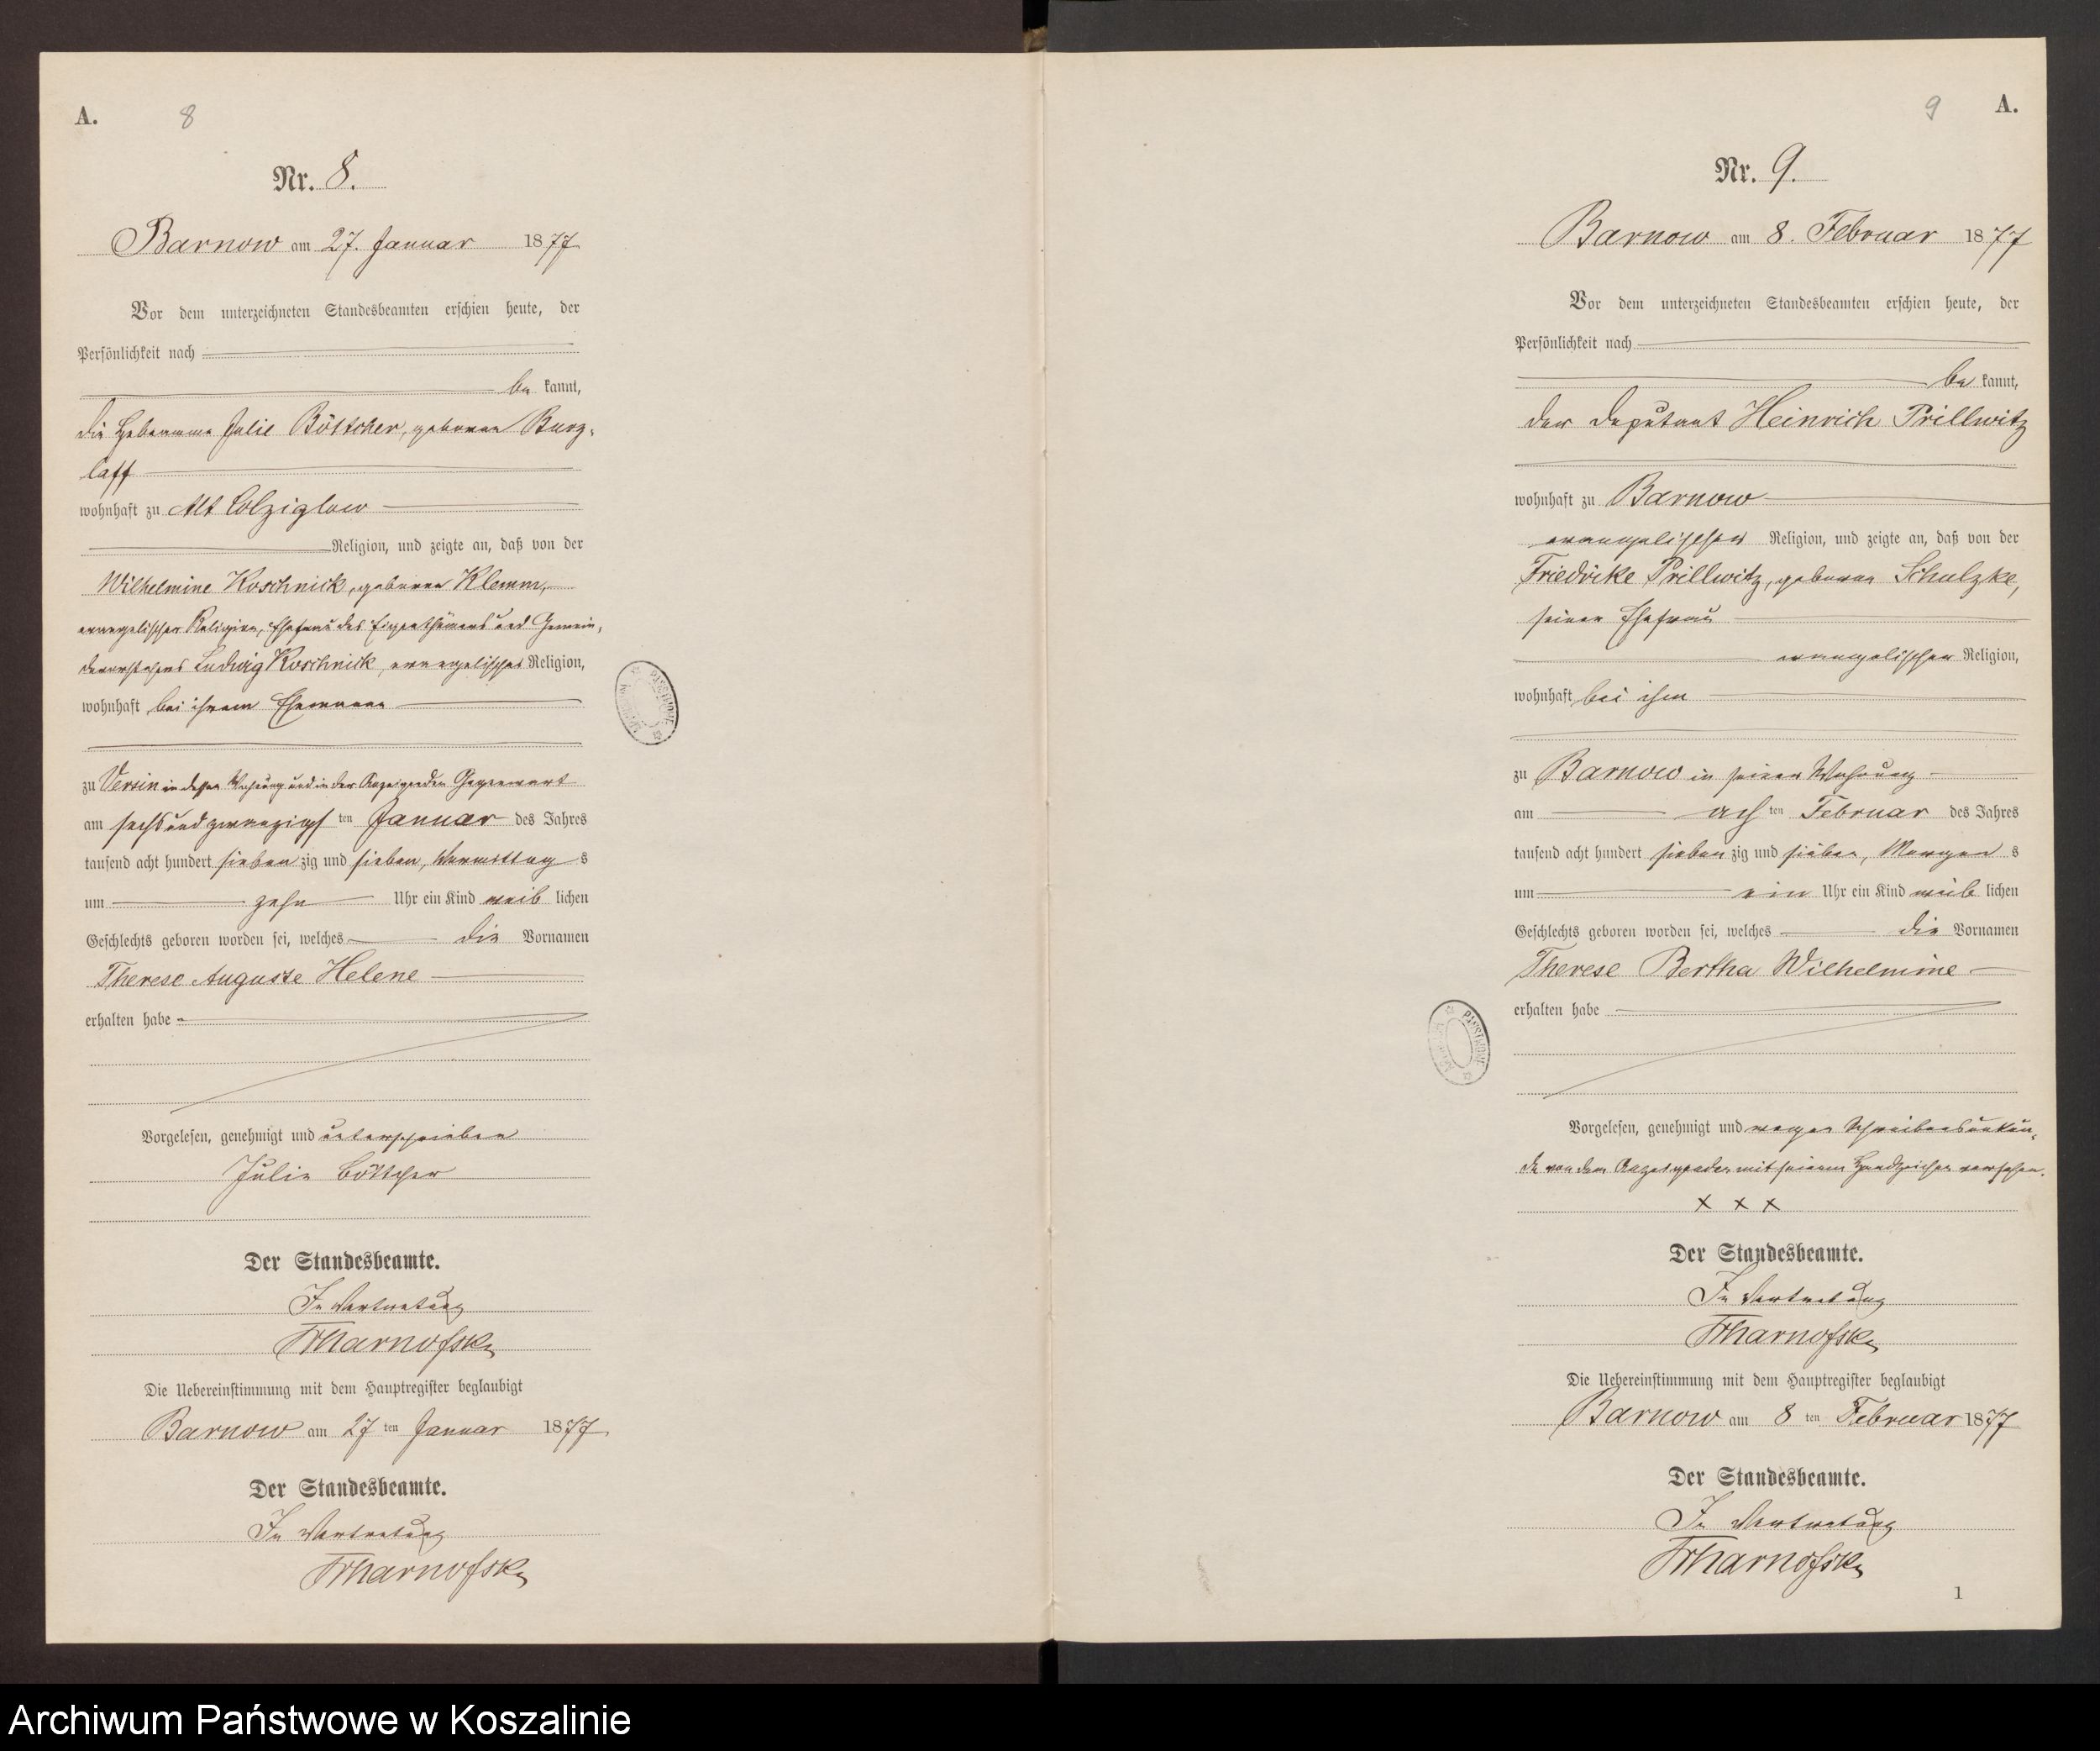 A.
8
Nr. 8.
Barnow am 27. Januar 1877
Vor dem unterzeichneten Standesbeamten erschien heute, der
Persönlichkeit nach
be kannt,
die Hebamme Julie Böttcher, geborene Burz-
laff
wohnhaft zu Alt Colziglow
Religion, und zeigte an, daß von der
Wilhelmine Koschnick, geborene Klemm,
evangelischer Religion, Ehefrau des Eigenthümers und Gemein-
devorstehers Ludwig Koschnick, evangelischer Religion,
wohnhaft bei ihrem Ehemanne
zu Versin in dessen Wohnung und in der Anzeigenden Gegenwart
am sechsundzwanzigs ten Januar des Jahres
tausend acht hundert sieben zig und sieben, Vormittag s
um zehn Uhr ein Kind weib lichen
Geschlechts geboren worden sei, welches die Vornamen
Therese Auguste Helene
erhalten habe
Vorgelesen, genehmigt und unterschrieben
Julie Böttcher
Der Standesbeamte.
In Vertretung
Die Uebereinstimmung mit dem Hauptregister beglaubigt
Barnow am 27 ten Januar 1877
Der Standesbeamte.
In Vertretung
9
A.
Nr. 9.
Barnow am 8. Februar 1877
Vor dem unterzeichneten Standesbeamten erschien heute, der
Persönlichkeit nach
be kannt,
der Deputant Heinrich Prillwitz
wohnhaft zu Barnow
evangelischer Religion, und zeigte an, daß von der
Friedrike Prillwitz, geborene Schulzke,
seiner Ehefrau
evangelischer Religion,
wohnhaft bei ihm
zu Barnow in seiner Wohnung
am ach ten Februar des Jahres
tausend acht hundert sieben zig und sieben, Morgen s
um ein Uhr ein Kind weib lichen
Geschlechts geboren worden sei, welches die Vornamen
Therese Bertha Wilhelmine
erhalten habe
Vorgelesen, genehmigt und wegen Schreibensunkun-
de von dem Anzeigenden mit seinem Handzeichen versehen.
x x x
Der Standesbeamte.
In Vertretung
Die Uebereinstimmung mit dem Hauptregister beglaubigt
Barnow am 8 ten Februar 1877
Der Standesbeamte.
In Vertretung
1
Archiwum Państwowe w Koszalinie